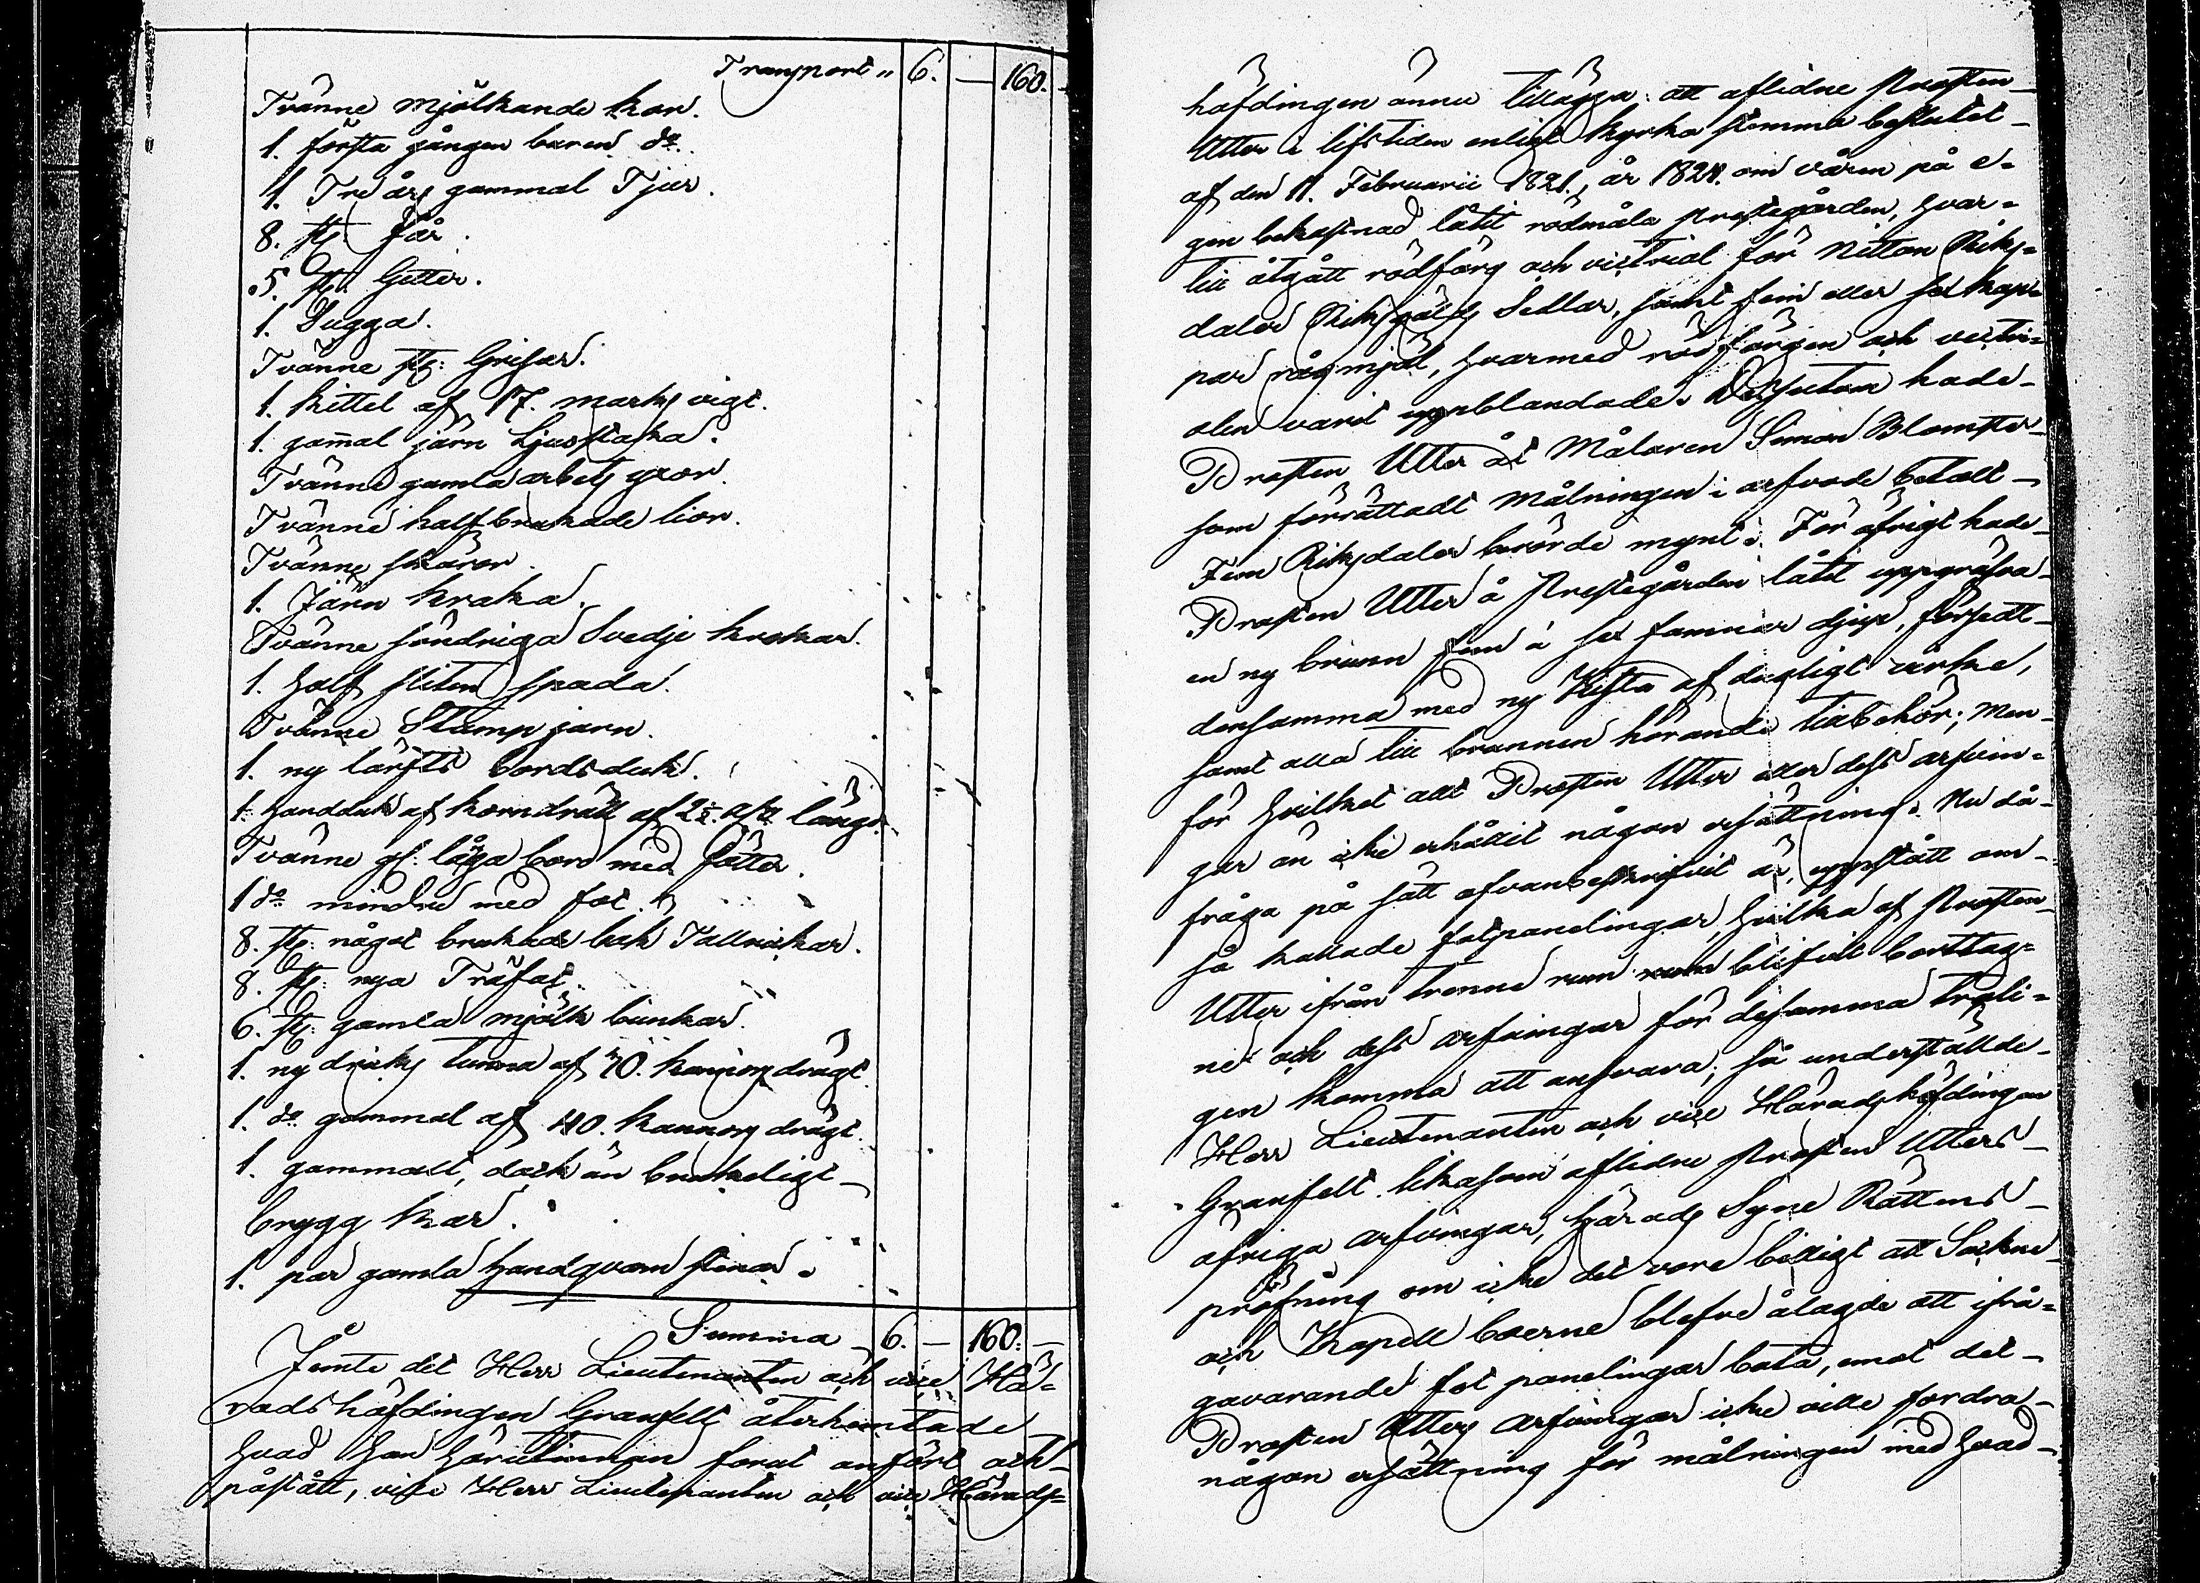 Transport " 6. — 160. —
Tvänne mjölkande kor.
1. första gången buren do.
1. Tre års gammal Tjur.
8. st: Får.
5. st: Getter.
1. Sugga.
Tvänne st: Grisar.
1. kittel af 17. marks vigt.
1. gam̄al järn Ljusstaka.
Tvänne gamla arbets yxor.
Tvänne half brukade lior.
Tvänne skäror.
1. Järn kraka.
Tvänne söndriga Svedje krokar.
1. half sliten spada.
Tvänne Stamp jarn.
1. ny lärfts bordsduk.
1. handduk af korndräll af 2½ aln längd.
Tvänne gl: låga bord med fötter.
1 do mindre med fot.
8. st: något brukade bak Tallrickar.
8. st: nya Träfat.
6. st: gamla mjölk bunkar.
1. ny dricks tunna af 70. kannors drägt.
1. do gammal af 40. kannors drägt.
1. gammalt, dock än brukeligt
brygg kar.
1. par gamla handqvarn stenar.
Summa 6. — 160. —
Jemte det Herr Lieutenanten och vice Hä-
radshöfdingen Granfelt återhemtade
hvad han härutinnan förut anfört och
påstått, ville Herr Lieutenanten och vice Härads-
höfdingen ännu tillägga: att aflidne Prosten
Utter i lifstiden enligt kyrko stemmo beslutet
af den 11. Februarii 1821., år 1824. om våren på e-
gen bekostnad låtit rödmåla Prestegården, hvar-
till åtgått rödfärg och victriol för Nitton Riks-
daler Riksgälds Sedlar, samt fem eller sex kap-
par rågmjöl, hvarmed rödfärgen och victri-
olen varit uppblandade. Dessutom hade
Prosten Utter åt Målaren Simon Blomster
som förrättadt målningen i arfvode betalt
Fem Riksdaler berörde mynt. För öfrigt hade
Prosten Utter å Prestegården låtit uppgräfva
en ny brunn fem à sex famnar djup, försedt
densamma med ny Kista af dugligt virke,
samt alla till brunnen hörande tillbehör; Men
för hvilket allt Prosten Utter eller dess arfvin-
gar än icke erhållit någon ersättning. Nu då
fråga på sätt ofvanbeskrifvit är, uppstått om
så kallade fotpanelingar, hvilka af Prosten
Utter ifrån trenne rum blifvit borttag-
ne och dess arfvingar för desamma troli-
gen komma att ansvara; så underställde
Herr Lieutenanten och vice Häradshöfdingen
Granfelt likasom aflidne Prosten Utters
öfriga arfvingar, Härads Syne Rättens
pröfning om icke det vore billigt att Sockne
och Kapell boerne blefve ålagde att ifrå-
gavarande fot panelingar bota, emot det
Prosten Utters arfvingar icke ville fordra
någon ersättning för målningen med hvad